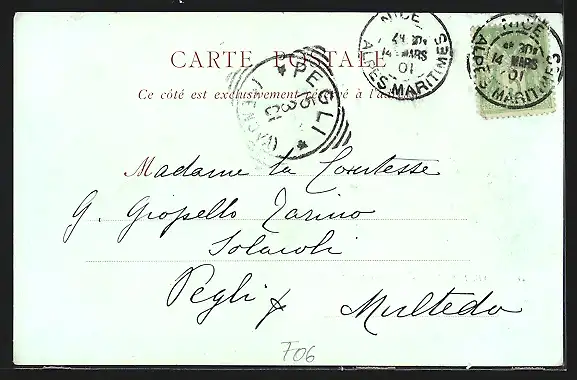 CARTE POSTALE
Ce côté est exclusivement réservé à l'a
NICE
14 MARS
01
ALPES MARITIMES
NICE
14 MARS
01
ALPES MARITIMES
PEGLI
15
3
01
Madame la Comtesse
G. Giopello Zarino
Solaroli
Pegli x Multedo
F06